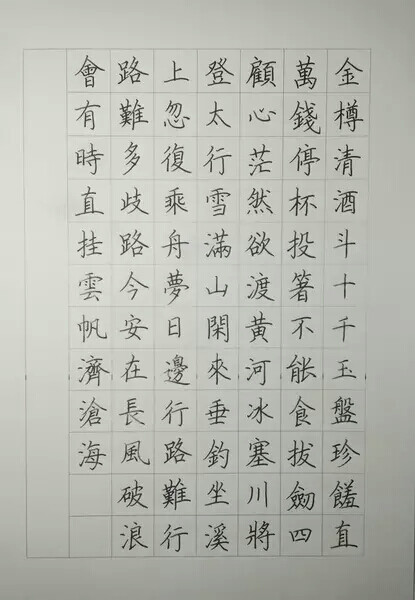 金樽清酒斗十千玉盤珍饈直
萬錢停杯投箸不能食拔劍四
顧心茫然欲渡黃河冰塞川將
登太行雪滿山閑來垂釣坐溪
上忽復乘舟夢日邊行路難行
路難多歧路今安在長風破浪
會有時直挂雲帆濟滄海